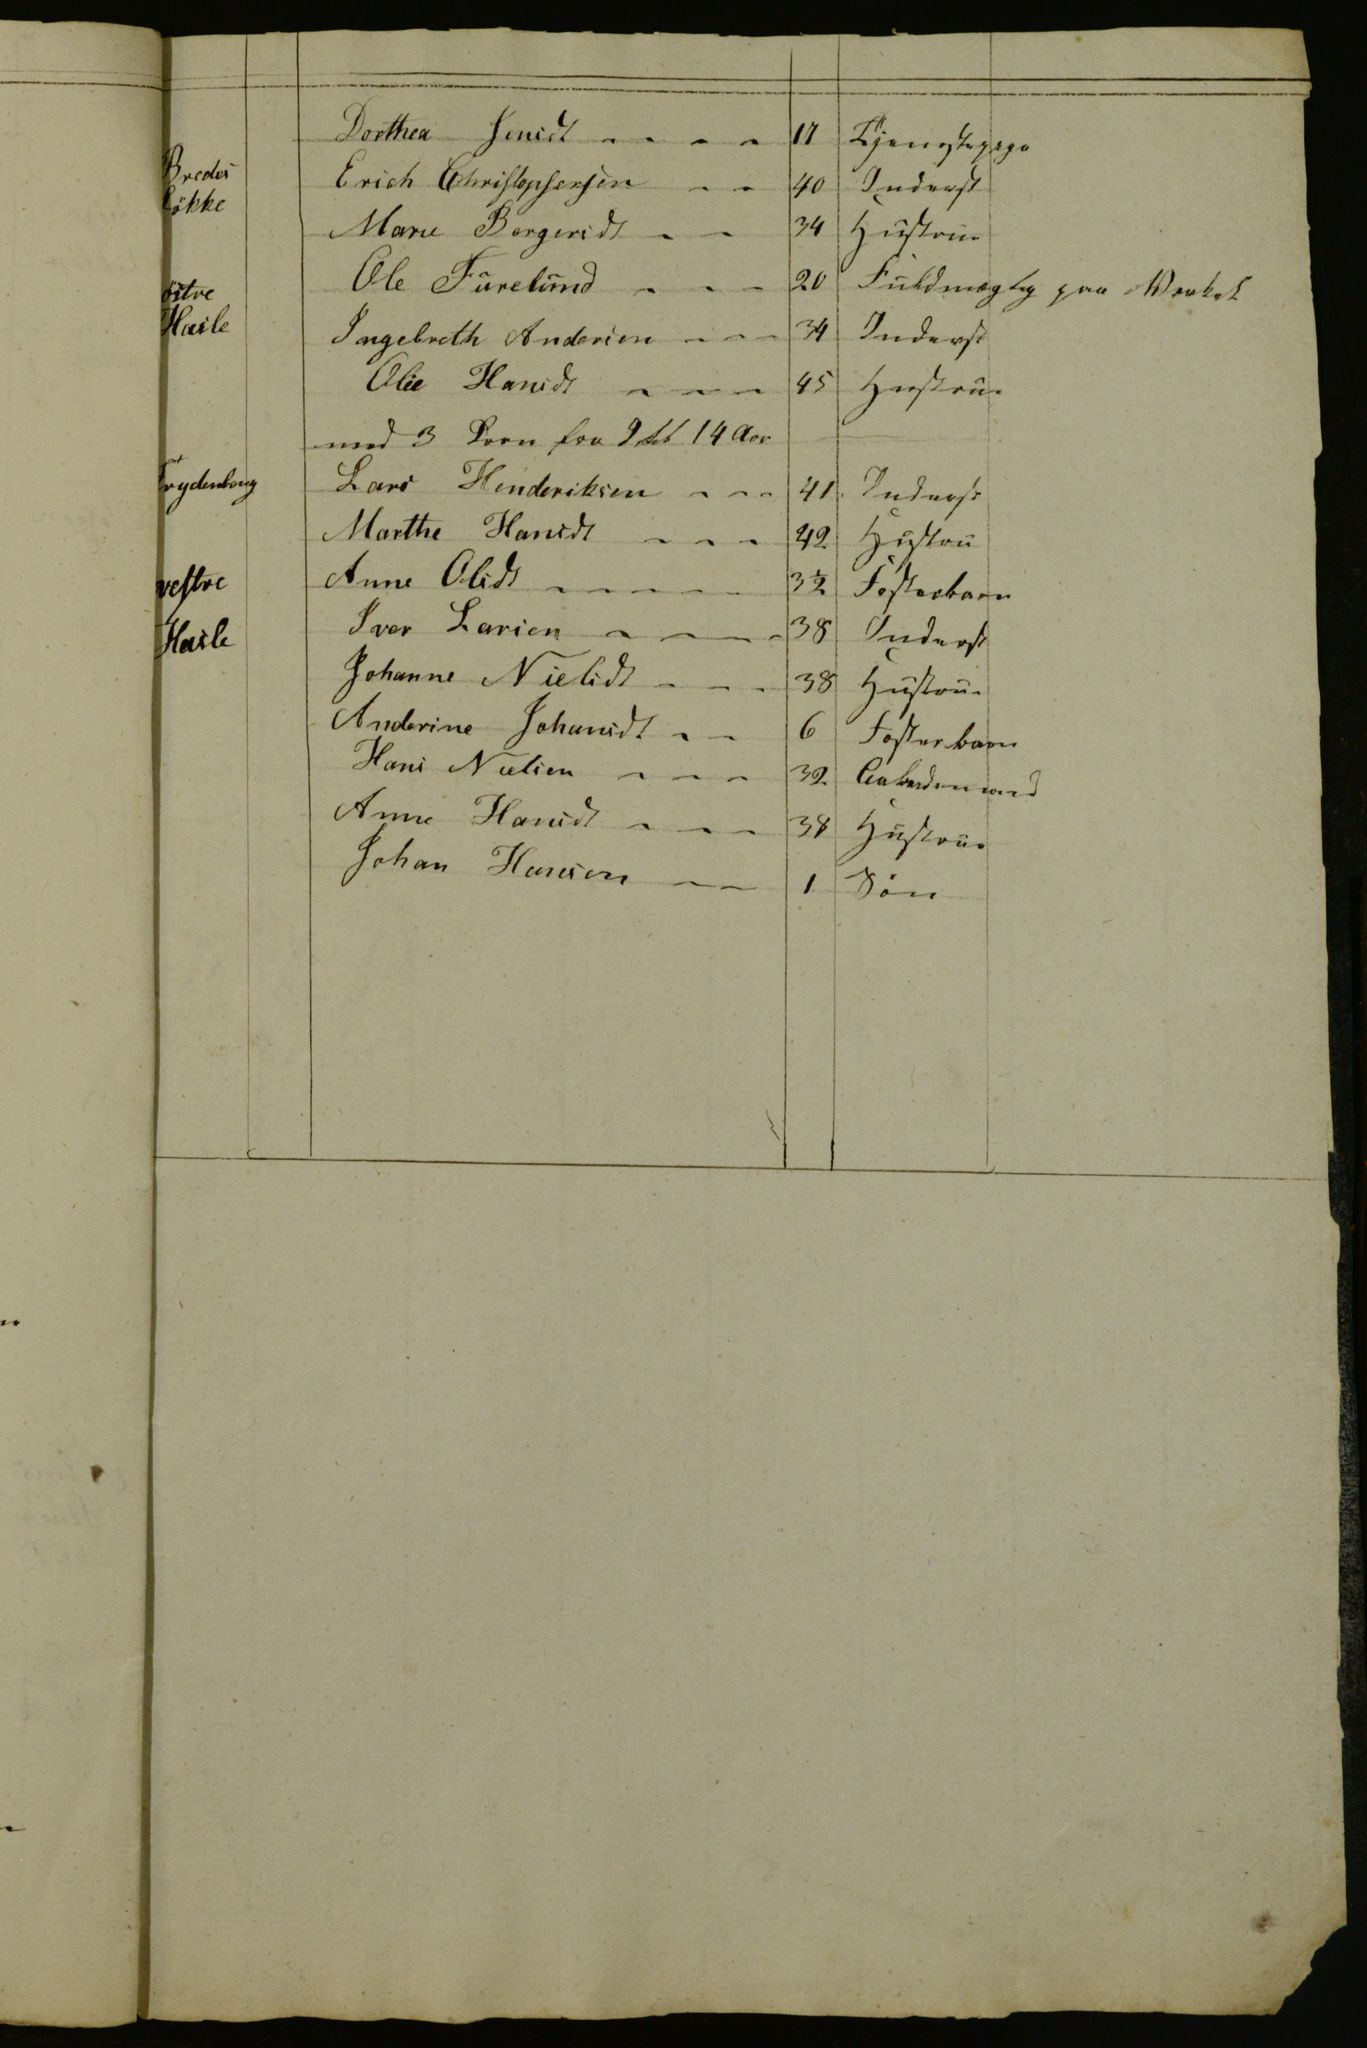 Dorthea Jensdt 17 Tjenestepige
Bredes Erich Christophersen 40 Inderst
Løkke
Marie Borgersdt 34 Hustrue
Ole Furelund 20 Fuldmægtig paa Værket
östre
Hasle Ingebreth Andersen 34 Inderst
Olie Hansdt 45 Hustrue
med 3 Børn fra 9 til 14 Aar
Frydenborg Lars Henderiksen 41 Inderst
Marthe Hansdt 42 Hustru
vestre Anne Olsdt 3½ Fosterbarn
Hasle Iver Larsen 38 Inderst
Johanne Nielsdt 38 Hustrue
Anderine Johansdt 6 Fosterbarn
Hans Nielsen 32 Arbeidsmand
Anne Hansdt 38 Hustrue
Johan Hansen 1 Søn